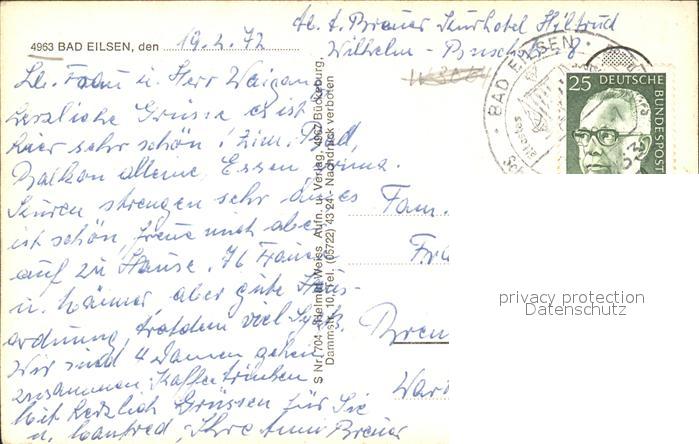 4963 BAD EILSEN, den 19.2.72
A. Breuer Kurhotel Hiltrud
Wilhelm-Busch 8
Lb. Frau u. Herr
herzliche Grüsse es ist
hier sehr schön! Zim. Bad,
Balkon alleine Essen prima.
Kuren strengen sehr an, es
ist schön, freue mich aber
auf zu Hause. 76 Frauen
u. Männer, aber gute Haus-
ordnung, trotzdem viel
Wir sind 4 Damen gehen
zusammen Kaffeetrinken
Mit herzlich Grüssen für Sie
u. Manfred, Ihre Anni Breuer
S Nr. 704 Helmut Weiss, Aufn. u. Verlag, 4967 Bückeburg,
Dammstr. 10, Tel. (05722) 43 24 - Nachdruck verboten
BAD EILSEN
25 DEUTSCHE
BUNDESPOST
Fam.
Fra
Brem
War
privacy protection
Datenschutz